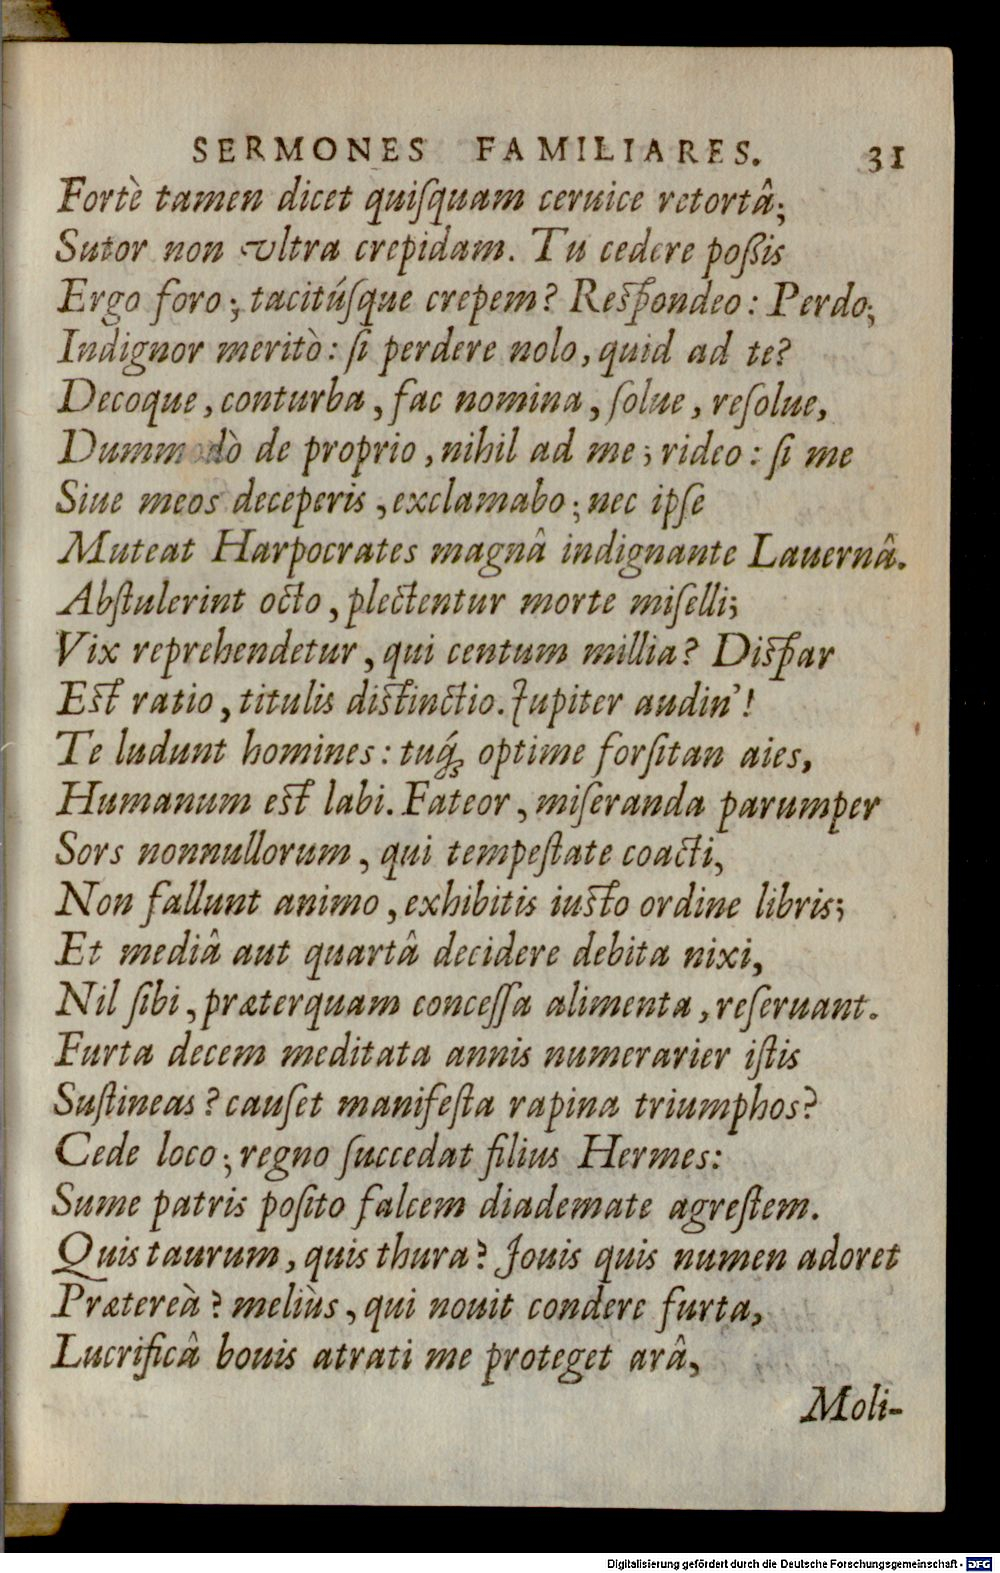 SERMONES FAMILIARES. 31
Fortè tamen dicet quiſquam ceruice retortâ;
Sutor non vltra crepidam. Tu cedere poßis
Ergo foro; tacitúſque crepem? Reſpondeo: Perdo;
Indignor meritò: ſi perdere nolo, quid ad te?
Decoque, conturba, fac nomina, ſolue, reſolue,
Dummodò de proprio, nihil ad me; rideo: ſi me
Siue meos deceperis, exclamabo; nec ipſe
Muteat Harpocrates magnâ indignante Lauernâ.
Abſtulerint octo, plectentur morte miſelli;
Vix reprehendetur, qui centum millia? Diſpar
Eſt ratio, titulis diſtinctio. Jupiter audin'!
Te ludunt homines: tuq́ꝫ optime forſitan aies,
Humanum eſt labi. Fateor, miſeranda parumper
Sors nonnullorum, qui tempeſtate coacti,
Non fallunt animo, exhibitis iuſto ordine libris;
Et mediâ aut quartâ decidere debita nixi,
Nil ſibi, præterquam conceſſa alimenta, reſeruant.
Furta decem meditata annis numerarier iſtis
Suſtineas? cauſet manifeſta rapina triumphos?
Cede loco; regno ſuccedat filius Hermes:
Sume patris poſito falcem diademate agreſtem.
Quis taurum, quis thura? Jouis quis numen adoret
Prætereà? meliùs, qui nouit condere furta,
Lucrificâ bouis atrati me proteget arâ,
Moli-
Digitalisierung gefördert durch die Deutsche Forschungsgemeinschaft - DFG